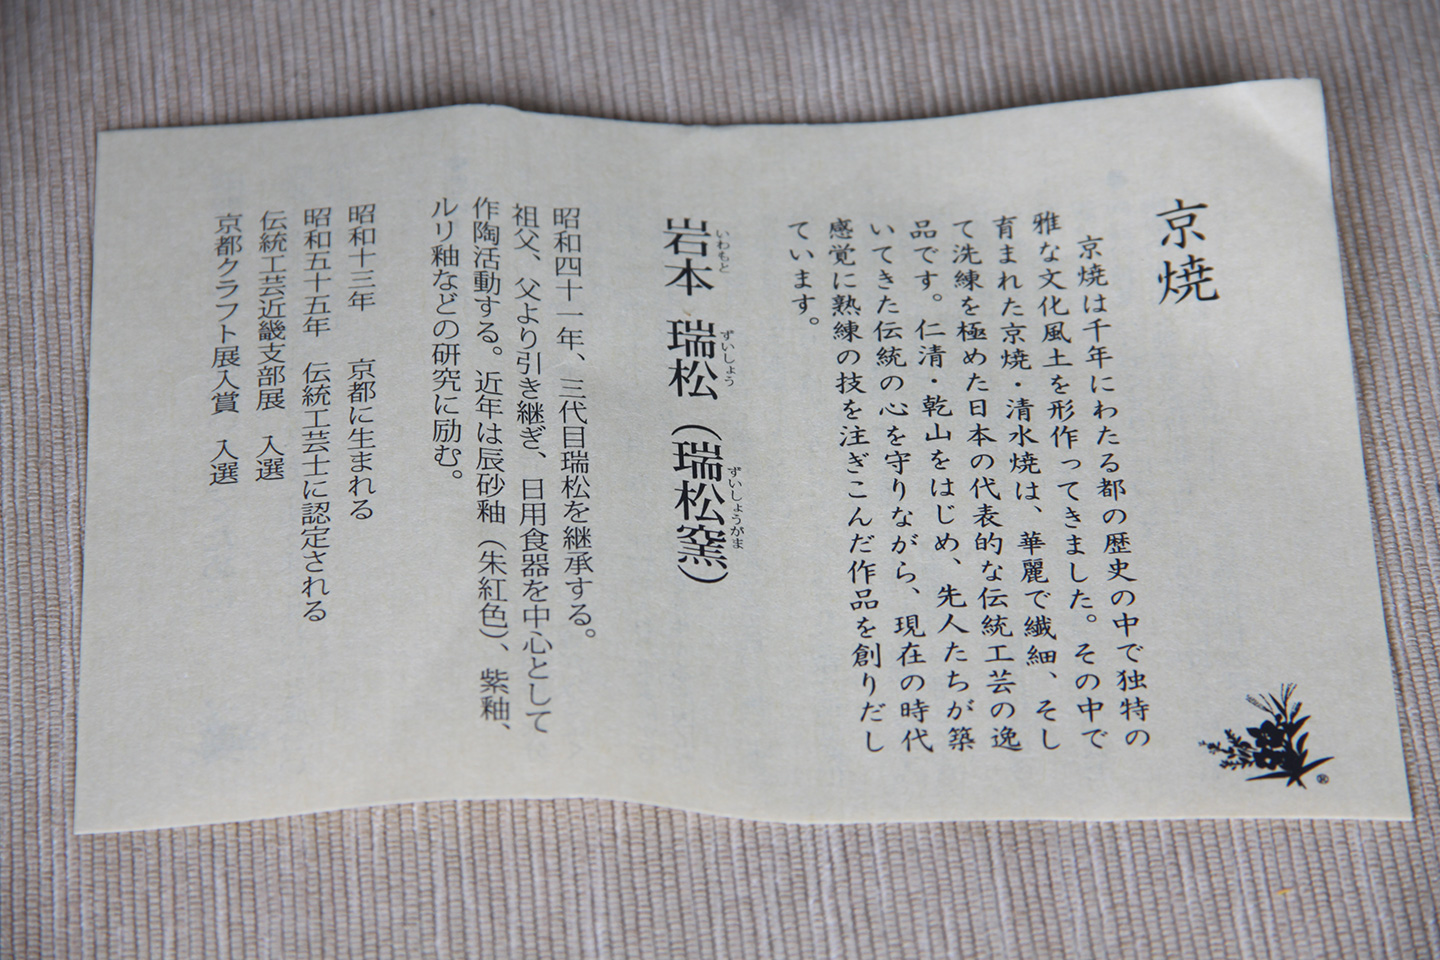 京焼
京焼は千年にわたる都の歴史の中で独特の
雅な文化風土を形作ってきました。その中で
育まれた京焼・清水焼は、華麗で繊細、そし
て洗練を極めた日本の代表的な伝統工芸の逸
品です。仁清・乾山をはじめ、先人たちが築
いてきた伝統の心を守りながら、現在の時代
感覚に熟練の技を注ぎこんだ作品を創りだし
ています。
岩本 瑞松（瑞松窯）
いわもと ずいしょう ずいしょうがま
昭和四十一年、三代目瑞松を継承する。
祖父、父より引き継ぎ、日用食器を中心として
作陶活動する。近年は辰砂釉（朱紅色）、紫釉、
ルリ釉などの研究に励む。
昭和十三年 京都に生まれる
昭和五十五年 伝統工芸士に認定される
伝統工芸近畿支部展 入選
京都クラフト展入賞 入選
®